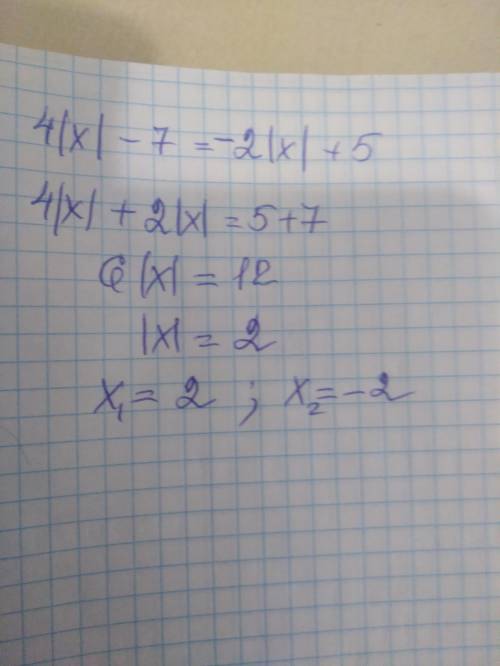 4|x| - 7 = -2|x| + 5
4|x| + 2|x| = 5+7
6|x| = 12
|x| = 2
x₁ = 2 ; x₂ = -2